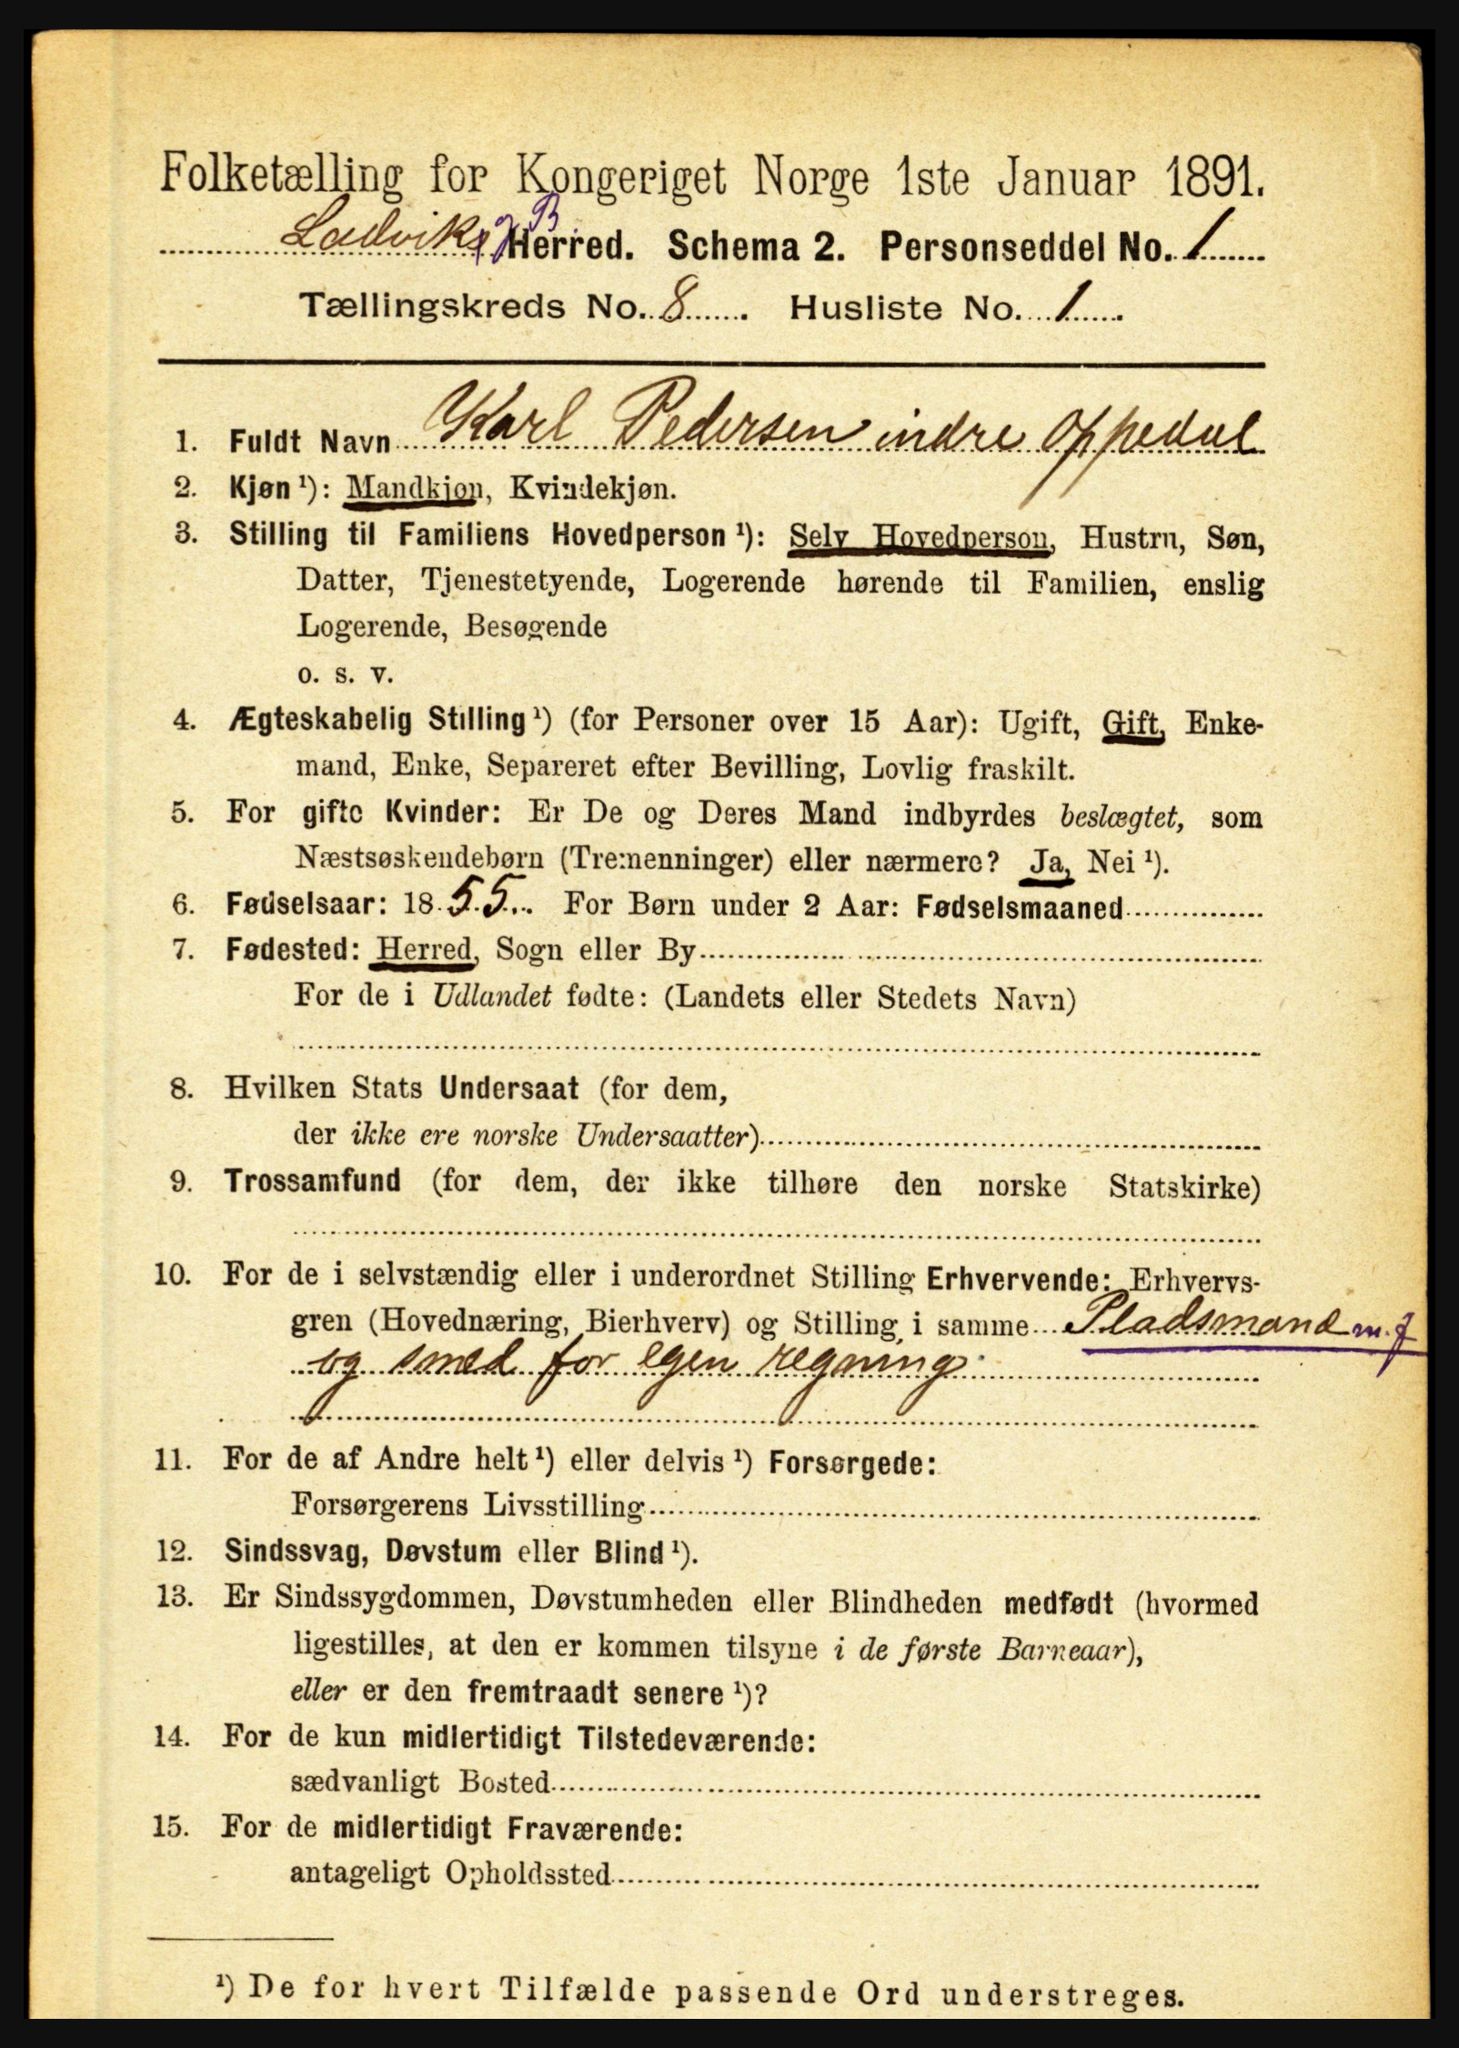 Folketælling for Kongeriget Norge 1ste Januar 1891.
Ladviks og B Herred. Schema 2. Personseddel No. 1
Tællingskreds No. 8. Husliste No. 1.
1. Fuldt Navn Karl Pedersen indre Oppedal
2. Kjøn ¹): Mandkjøn, Kvindekjøn.
3. Stilling til Familiens Hovedperson ¹): Selv Hovedperson, Hustru, Søn,
Datter, Tjenestetyende, Logerende hørende til Familien, enslig
Logerende, Besøgende
o. s. v.
4. Ægteskabelig Stilling ¹) (for Personer over 15 Aar): Ugift, Gift, Enke-
mand, Enke, Separeret efter Bevilling, Lovlig fraskilt.
5. For gifte Kvinder: Er De og Deres Mand indbyrdes beslægtet, som
Næstsøskendebørn (Tremenninger) eller nærmere? Ja, Nei ¹).
6. Fødselsaar: 1855. For Børn under 2 Aar: Fødselsmaaned
7. Fødested: Herred, Sogn eller By
For de i Udlandet fødte: (Landets eller Stedets Navn)
8. Hvilken Stats Undersaat (for dem,
der ikke ere norske Undersaatter)
9. Trossamfund (for dem, der ikke tilhøre den norske Statskirke)
10. For de i selvstændig eller i underordnet Stilling Erhvervende: Erhvervs-
gren (Hovednæring, Bierhverv) og Stilling i samme Pladsmand m. j
og smed for egen regning
11. For de af Andre helt ¹) eller delvis ¹) Forsørgede:
Forsørgerens Livsstilling
12. Sindssvag, Døvstum eller Blind ¹).
13. Er Sindssygdommen, Døvstumheden eller Blindheden medfødt (hvormed
ligestilles, at den er kommen tilsyne i de første Barneaar),
eller er den fremtraadt senere ¹)?
14. For de kun midlertidigt Tilstedeværende:
sædvanligt Bosted
15. For de midlertidigt Fraværende:
antageligt Opholdssted
¹) De for hvert Tilfælde passende Ord understreges.